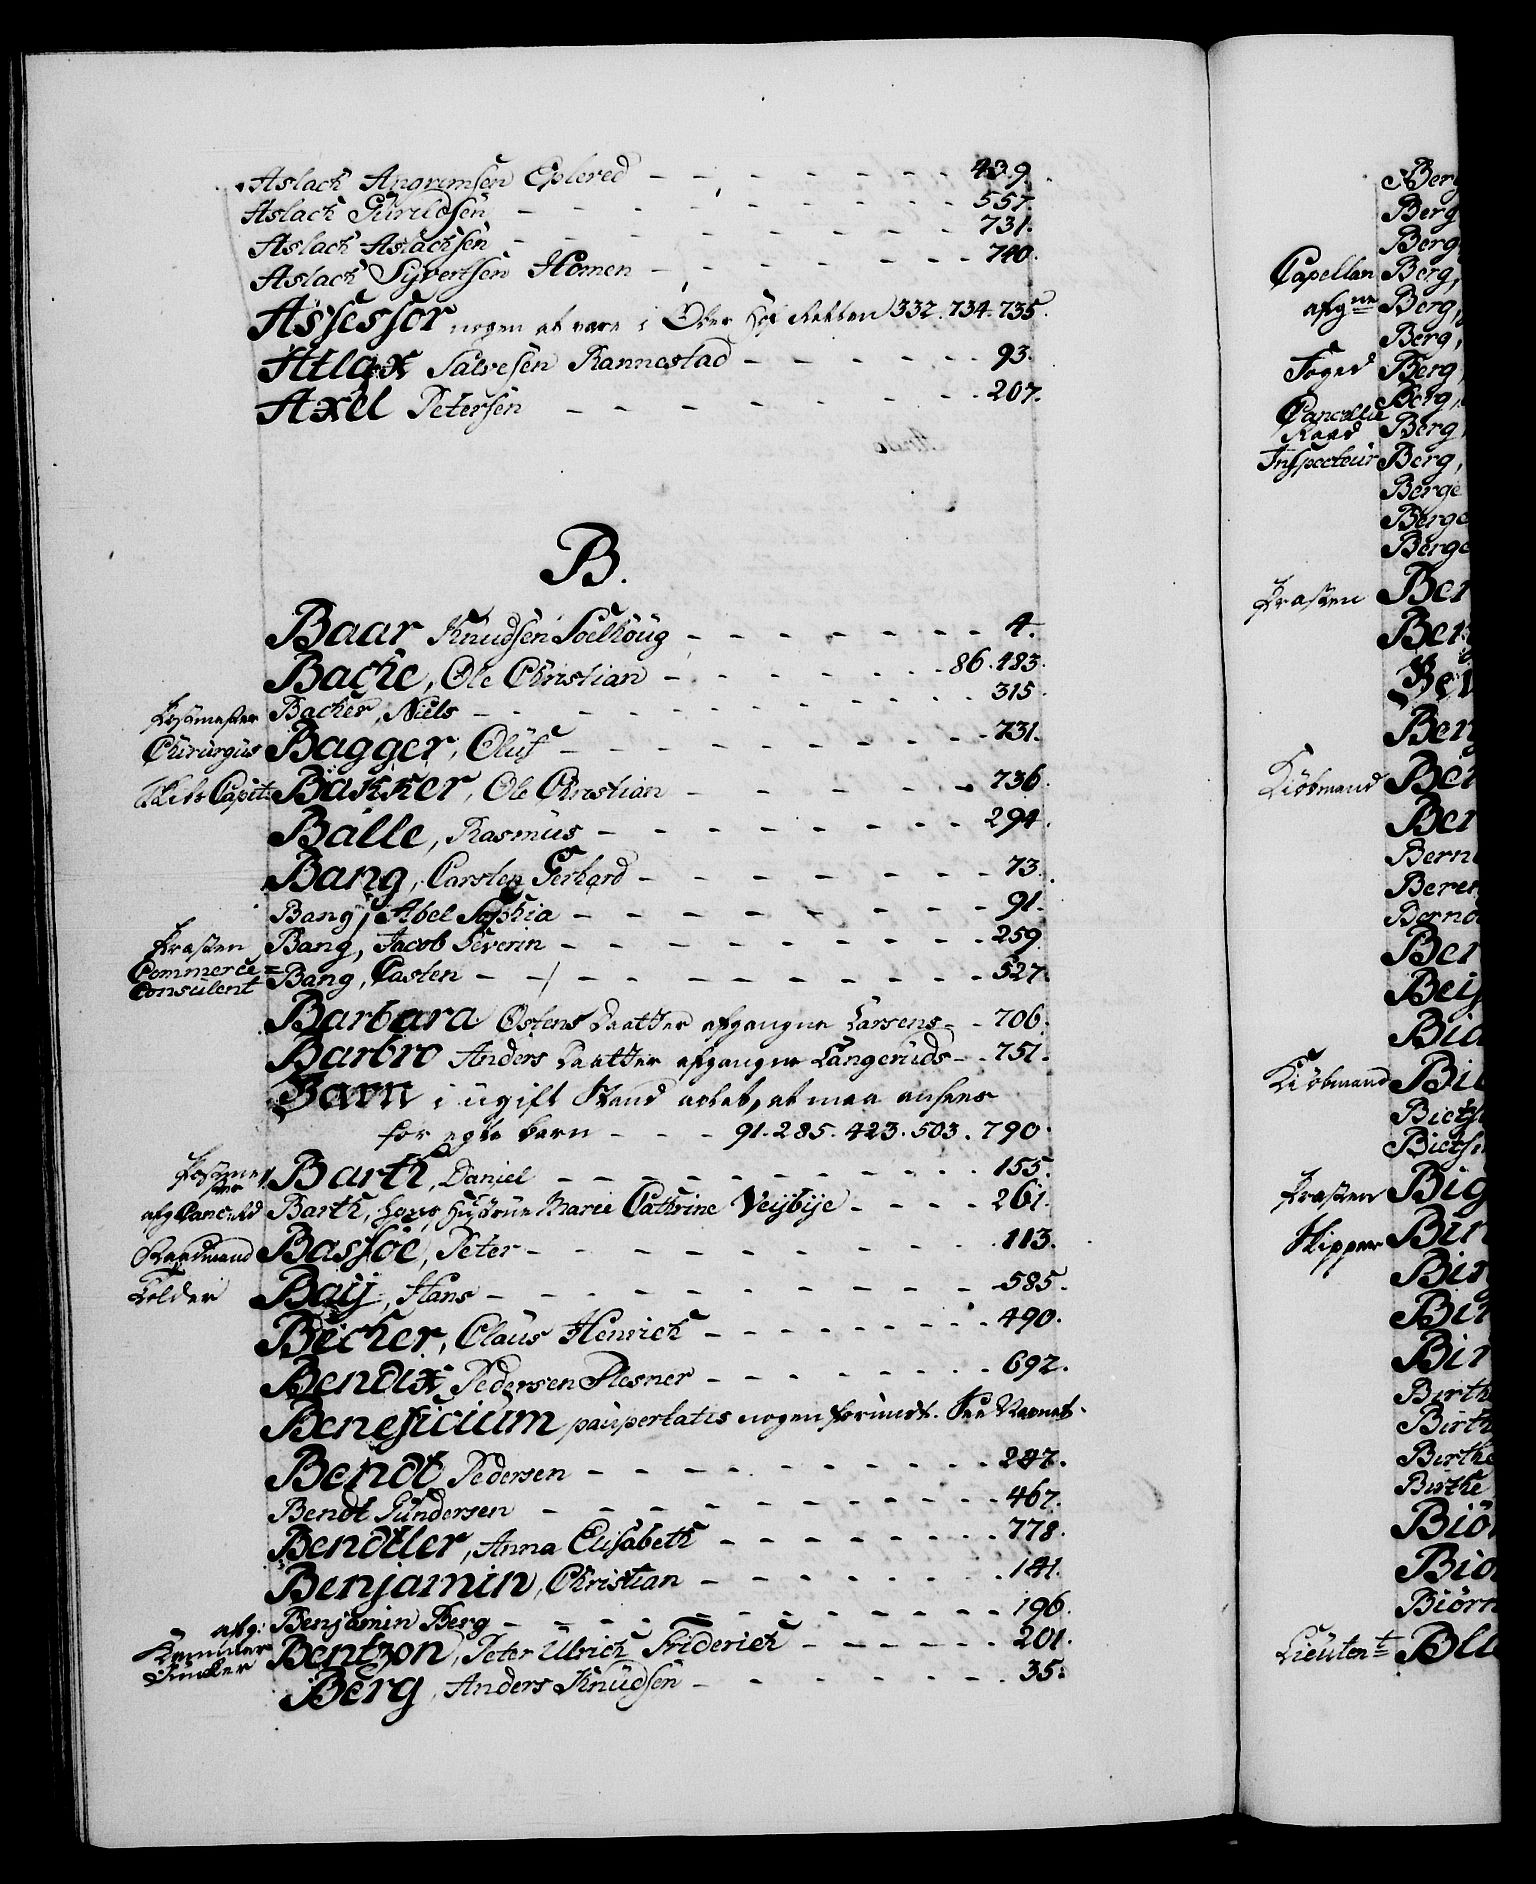 Aslach Angrimsen Eplered - - - - - - - - 439.
Aslach Gunildsen - - - - - - - - - 557.
Aslach Aslachsen - - - - - - - - - 731.
Aslach Syvertsen Homen - - - - - - - 740.
Assessor nogen at være i Over Hof Retten 332. 734. 735.
Atlax Salvesen Rannestad - - - - - - 93.
Axel Petersen - - - - - - - - 207.
B.
Baar Knudsen Soelhoug - - - - - - - - 4.
Bache, Ole Christian - - - - - - - 86. 183.
Backer, Niels - - - - - - - - - 315
Chirurgus Bagger, Oluf - - - - - - - - - 731.
Capit: Bakker, Ole Christian - - - - - - 736.
Balle, Rasmus - - - - - - - - - 294.
Bang, Carsten Gerhard - - - - - - - 73.
Bang, Abel Sophia - - - - - - - - - 91.
Præsten Bang, Jacob Severin - - - - - - - - - 259.
Commerce=
Consulent Bang, Casten - - - - - - - - - - 527.
Barbara Ostens Daatter afgangne Larsens - - 706.
Barbro Anders Daatter afgangen Langeruds - - 751.
Barn i ugift Stand avlet, at maa ansees
for ægte barn - - - 91. 285. 423. 503. 790.
Barth, Daniel - - - - - - - - 155.
Barth, Hustrue Marie Cathrine Veijbije - - - - 261.
Raadmand Bassøe, Peter - - - - - - - - - 113.
Tolder Baij, Hans - - - - - - - - - 585.
Becher, Claus Henrich - - - - - - - - 490.
Bendix Pedersen Plesner - - - - - - - 692.
Beneficium paupertatis nogen forundt. See Navnet.
Bendt Pedersen - - - - - - - - - - 247.
Bendt Gundersen - - - - - - - - - 467.
Bendtler, Anna Elisabeth - - - - - - - 778.
Benjamin, Christian - - - - - - - - 141.
Benjamin Berg - - - - - - - - - - 196.
afg:
Kammer
Junker Bentzon, Peter Ulrich Friderich - - - - - - 201.
Berg, Anders Knudsen - - - - - - - 35.
Berg
Berg
Berg
Capellan Berg,
afgne Berg,
Berg,
Foged Berg,
Berg,
Cancellie
Raad Berg,
Inspecteur Berg,
Berge
Berge
Berge
Præsten Ber
Ber
Ber
Kiöbmand Ber
Ber
Bern
Beren
Berno
Ber
Bei
Bia
Kiöbmand Bi
Biets
Biets
Præsten Big
Skipper Bir
Bir
Bir
Bir
Birth
Birth
Birthe
Birthe
Biör
Biö
Biörn
Lieutent Bl